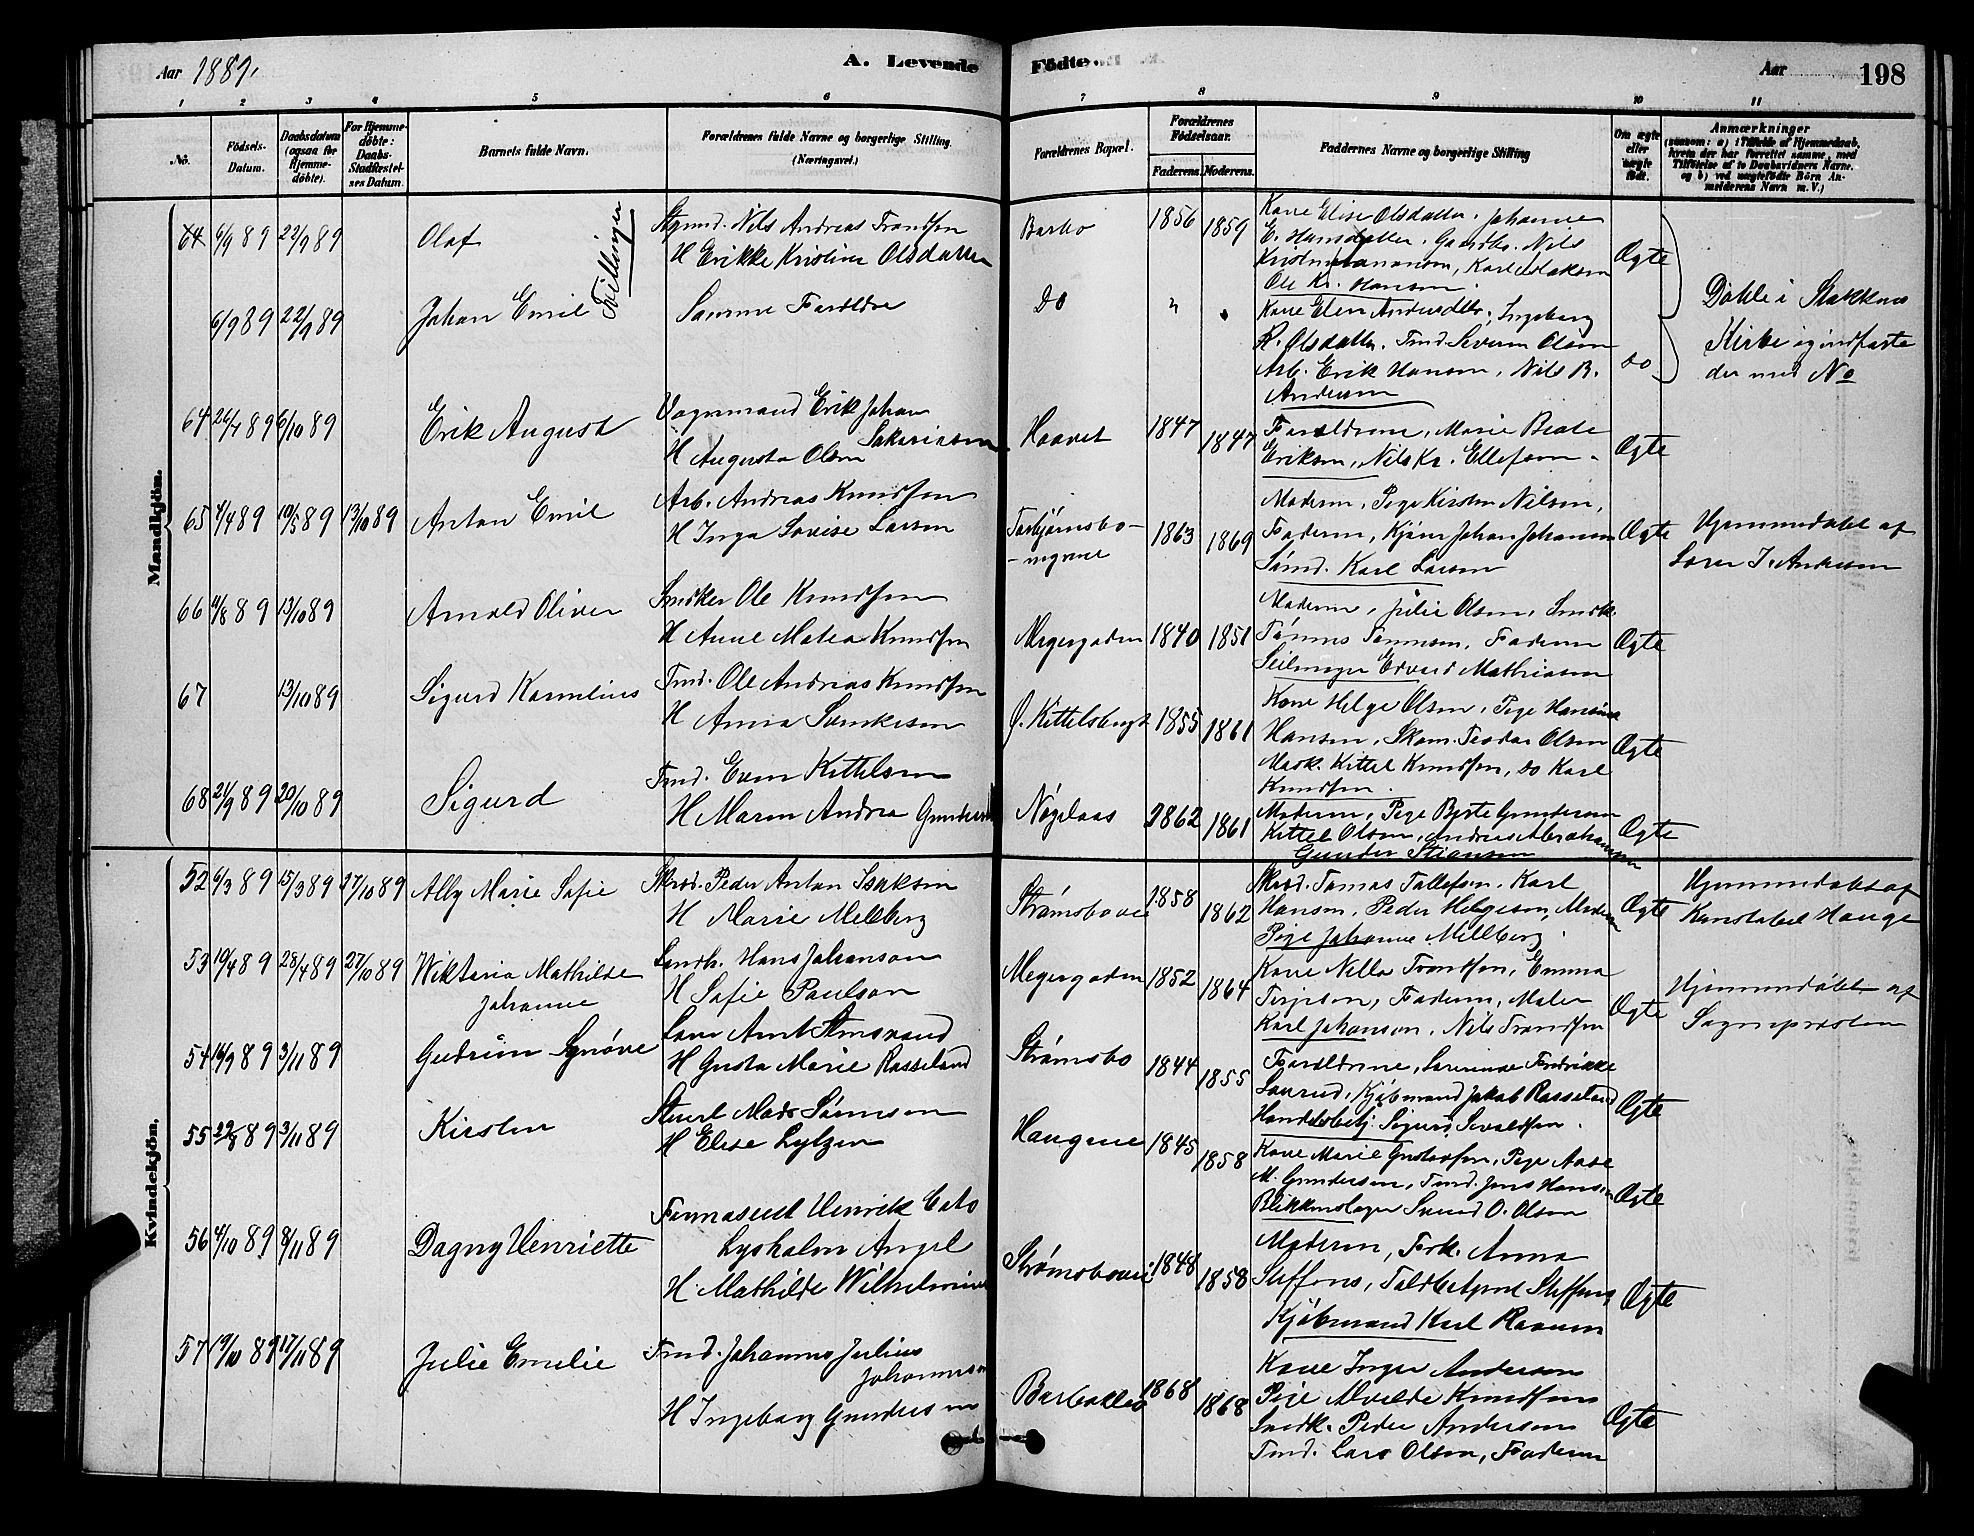 Aar 1889.
A. Levende Födte.
Aar
198
1 2 3 4 5 6 7 8 9 10 11
No.
Födsels-Datum.
Daabsdatum (ogsaa for Hjemme-döbte).
For Hjemme-döbte: Daabs-Stadfæstel-ses Datum.
Barnets fulde Navn.
Forældrenes fulde Navne og borgerlige Stilling (Næringsvei.)
Forældrenes Bopæl.
Forældrenes Födselsaar.
Faderens. Moderens.
Faddernes Navne og borgerlige Stilling
Om ægte eller uægte født.
Anmærkninger
(saasom: a) i Tilfælde af Hjemmedaab, hvem der har forrettet samme, med Tilföielse af to Daabsvidners Navne, og b) ved uægtefödte Börn An-melderens Navn m. V.)
Mandkjön.
64 6/9 89 22/9 89 Olaf Tvillinger
Nils Andreas Trondsen
H Erikke Kristine Olsdatter
Barbo 1856 1859
Kone Elise Olsdatter, Johanne
E. Hansdatter, Gaardbr. Nils
Ole Kr. Hansen
Ægte
6/9 89 22/9 89 Johan Emil
Samme Forældre
Do " "
Kone Elen Andersdtr, Ingeborg
R. Olsdatter, Tmd. Severin Olsen
Arb. Erik Hansen, Nils B.
Andersen
do
Døbte i Stokkens
Kirke og indførte
der med No
64 26/7 89 6/10 89 Erik August
Vognmand Erik Johan
Sakariasen
H Augusta Olsen
Haavet 1847 1847
Forældrene, Marie Beate
Eriksen, Nils Kr. Ellefsen
Ægte
65 4/4 89 10/5 89 13/10 89 Anton Emil
Arb. Andreas Knudsen
H Inga Lovise Larsen
Torbjørnsbo-
-ingene
1863 1869
Moderen, Pige Kirsten Nilsen,
Faderen, Kjører Johan Johansen
Sømd. Karl Larsen
Ægte
Hjemmedøbt af
Lærer I. Andersen
66 4/8 89 13/10 89 Arnold Oliver
Snedker Ole Knudsen
H Anne Matea Knudsen
Meyergaden 1840 1851
Moderen, Julie Olsen, Snedk.
Tønnes Tønnesen, Faderen
Seilmager Edvard Mathiasen
Ægte
67 13/10 89 Sigurd Kornelius
Tmd. Ole Andreas Knudsen
H Anna Samkesen
Ø. Kittelsbugt 1855 1861
Kone Helge Olsen, Pige Hansine
Hansen, Skom. Teodor Olsen
Mask. Kittel Knudsen, do Karl
Knudsen.
Ægte
68 21/9 89 20/10 89 Sigurd
Tmd. Even Kittelsen
H Maren Andrea Gundersen
Nøgelaas 1862 1861
Moderen, Pige Berte Gundersen
Kittel Olsen, Andreas Abrahamsen
Gunder Stiansen
Ægte
Kvindekjön.
52 6/3 89 15/3 89 27/10 89 Alby Marie Sofie
Skræd. Peder Anton Isaksen
H Marie Mellberg
Strømsboveien 1858 1862
Skræd. Tomas Tallefsen, Karl
Hansen, Peder Helgesen, Moderen
Pige Johanne Mellberg
Ægte
Hjemmedøbt af
Konstabel Hauge
53 19/4 89 28/4 89 27/10 89 Wiktoria Mathilde
Johanne
Landh. Hans Johanson
H Sofie Paulson
Meyergaden 1852 1864
Kone Nella Trondsen, Emma
Terjesen, Faderen, Maler
Karl Johanson, Nils Trondsen
Ægte
Hjemmedøbt af
Sognepresten
54 14/9 89 3/11 89 Gudrun Synøve
H Gusta Marie Rasseland
Strømsbo 1844 1855
Forældrene, Severine Fredrikke
Laurud, Kjøbmand Jakob Rasseland
Handelsbetj. Sigurd Sivaldsen.
Ægte
55 29/8 89 3/11 89 Kirsten
Stuert Mads Sørensen
H Elise Lytzen
Haugene 1845 1858
Kone Marie Gustavsen, Pige Aase
M. Gundersen, Tmd. Jens Hansen
Blikkenslager Svend O. Olsen
Ægte
56 4/10 89 8/11 89 Dagny Henriette
Farmaseut Henrik Cato
Lyshalm Angel
H Mathilde Wilhelmine
Strømsboveien 1848 1858
Moderen, Frk. Anna
Steffens, Toldbetjent Steffens
Kjøbmand Karl Raanes
Ægte
57 19/10 89 17/11 89 Julie Emilie
Tmd. Johannes Julius
Johannesen
H Ingeborg Gundersen
Barbokleiv 1868 1868
Kone Inger Andersen
Pige Alvilde Knudsen
Snedk. Peder Andersen
Tmd. Lars Olsen, Faderen
Ægte